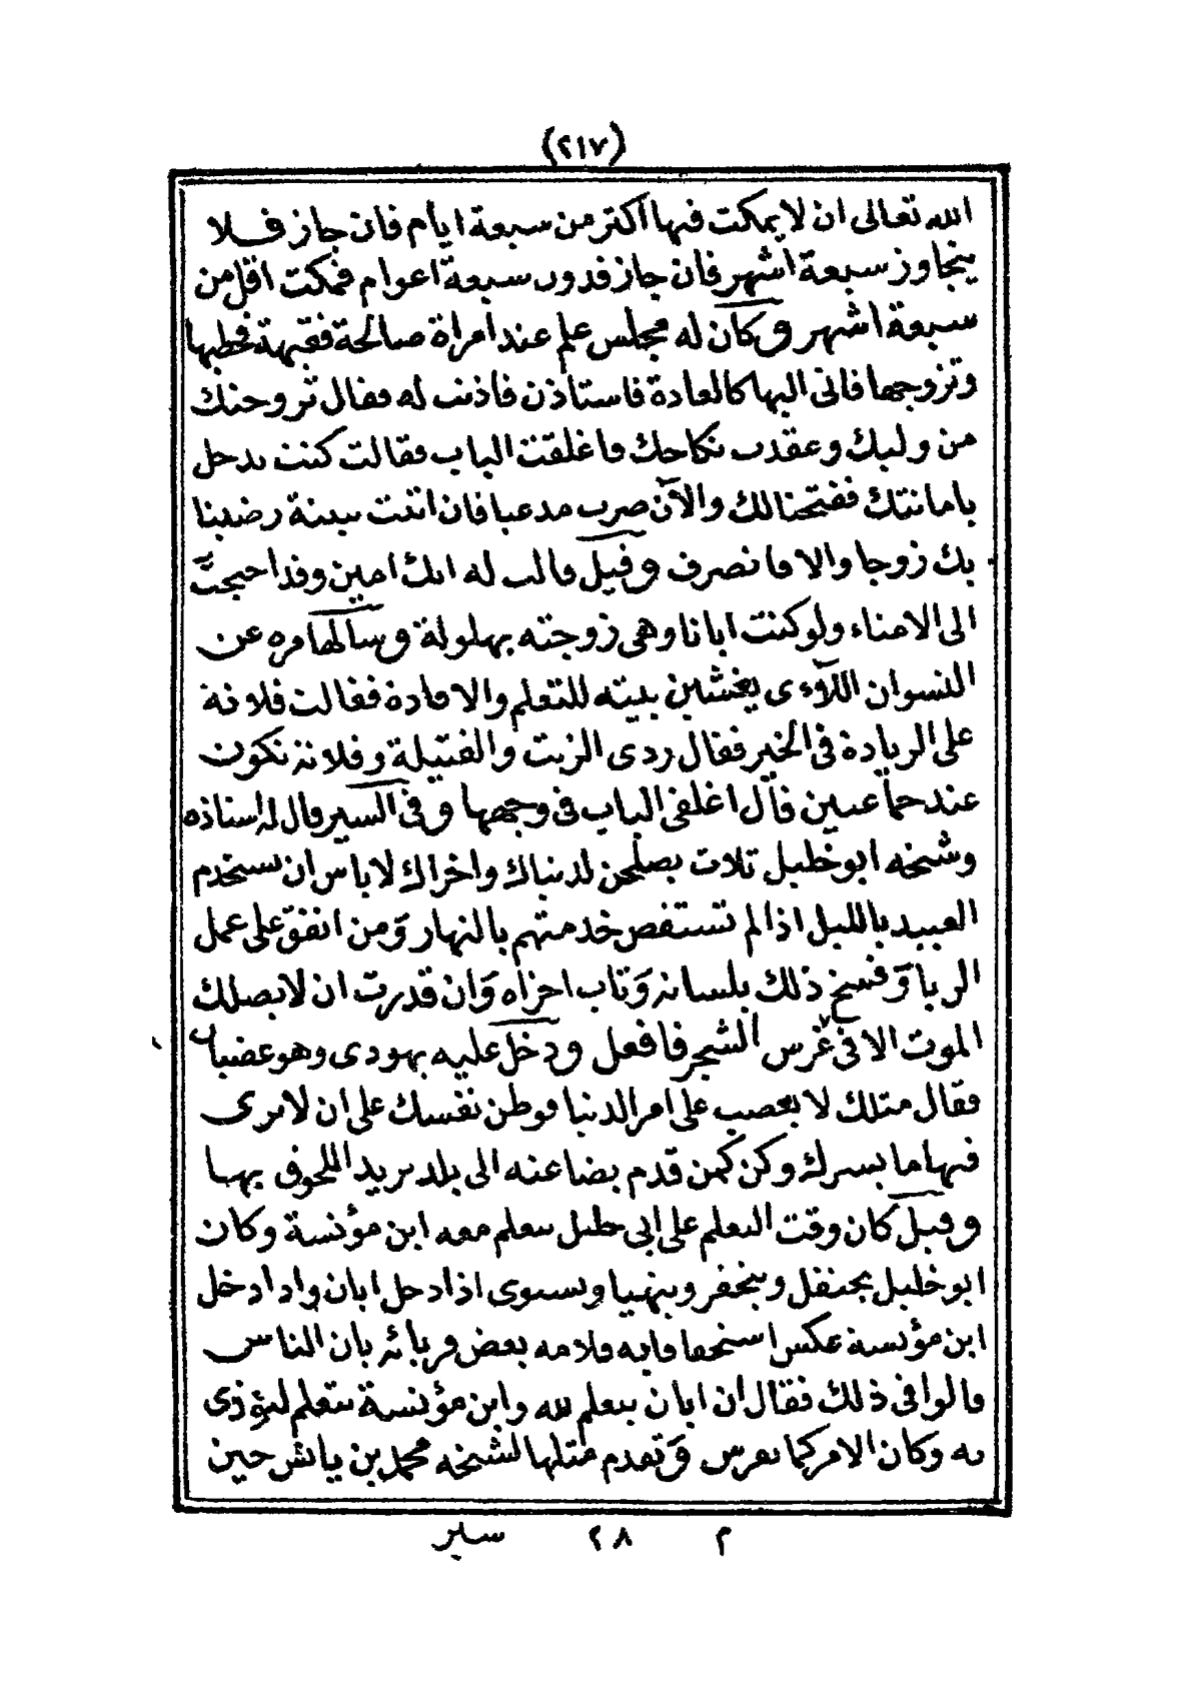 (٢١٧)
الله تعالى ان لا يمكث فيها اكثر من سبعة ايام فان جاز فلا
يتجاوز سبعة اشهر فان جاز فدون سبعة اعوام فمكث اقل من
سبعة اشهر وكان له مجلس علم عند امراة صالحة فقيهة فخطبها
وتزوجها فاتى اليها كالعادة فاستأذن فاذنت له فقال تزوجتك
من وليك وعقدت نكاحك فاغلقت الباب فقالت كنت تدخل
بامانتك ففتحنا لك والآن صرت مدعيا فان اتيت ببينة رضينا
بك زوجا والا فانصرف وقيل قالت له انك امين وقد احتجت
الى الامناء ولو كنت ابانا وهى زوجته بهلولة وسألها مره عن
النسوان اللآءى يغشين بيته للتعلم والافادة فقالت فلانة
على الزيادة فى الخير فقال زدى الزيت والفتيلة وفلانة تكون
عند حماعيين قال اغلقى الباب فى وجهها وفى السير قال له استاذه
وشيخه ابو خليل ثلاث يصلحن لدنياك واخراك لا باس ان تستخدم
العبيد بالليل اذا لم تستنقص خدمتهم بالنهار ومن انفق على عمل
الريا وفسخ ذلك بلسانه وتاب اجزاه وان قدرت ان لا يصلك
الموت الا فى غرس الشجر فافعل ودخل عليه يهودى وهو غضبان
فقال مثلك لا يغضب على امر الدنيا فوطن نفسك على ان لا ترى
فيها ما يسرك وكن كمن قدم بضاعته الى بلد يريد اللحوق بها
وقيل كان وقت التعلم على ابى خليل يتعلم معه ابن مؤنسة وكان
ابو خليل يحتفل ويتحفز ويتهيا ويستوى اذا دخل ابان واذا دخل
ابن مؤنسة عكس استخفافا به فلامه بعض قربائه بان الناس
قالوا فى ذلك فقال ان ابان يتعلم لله وابن مؤنسة يتعلم ليؤذى
به وكان الامر كما تفرس وتقدم مثلها لشيخه محمد بن يانس حين
م ٢٨ سير